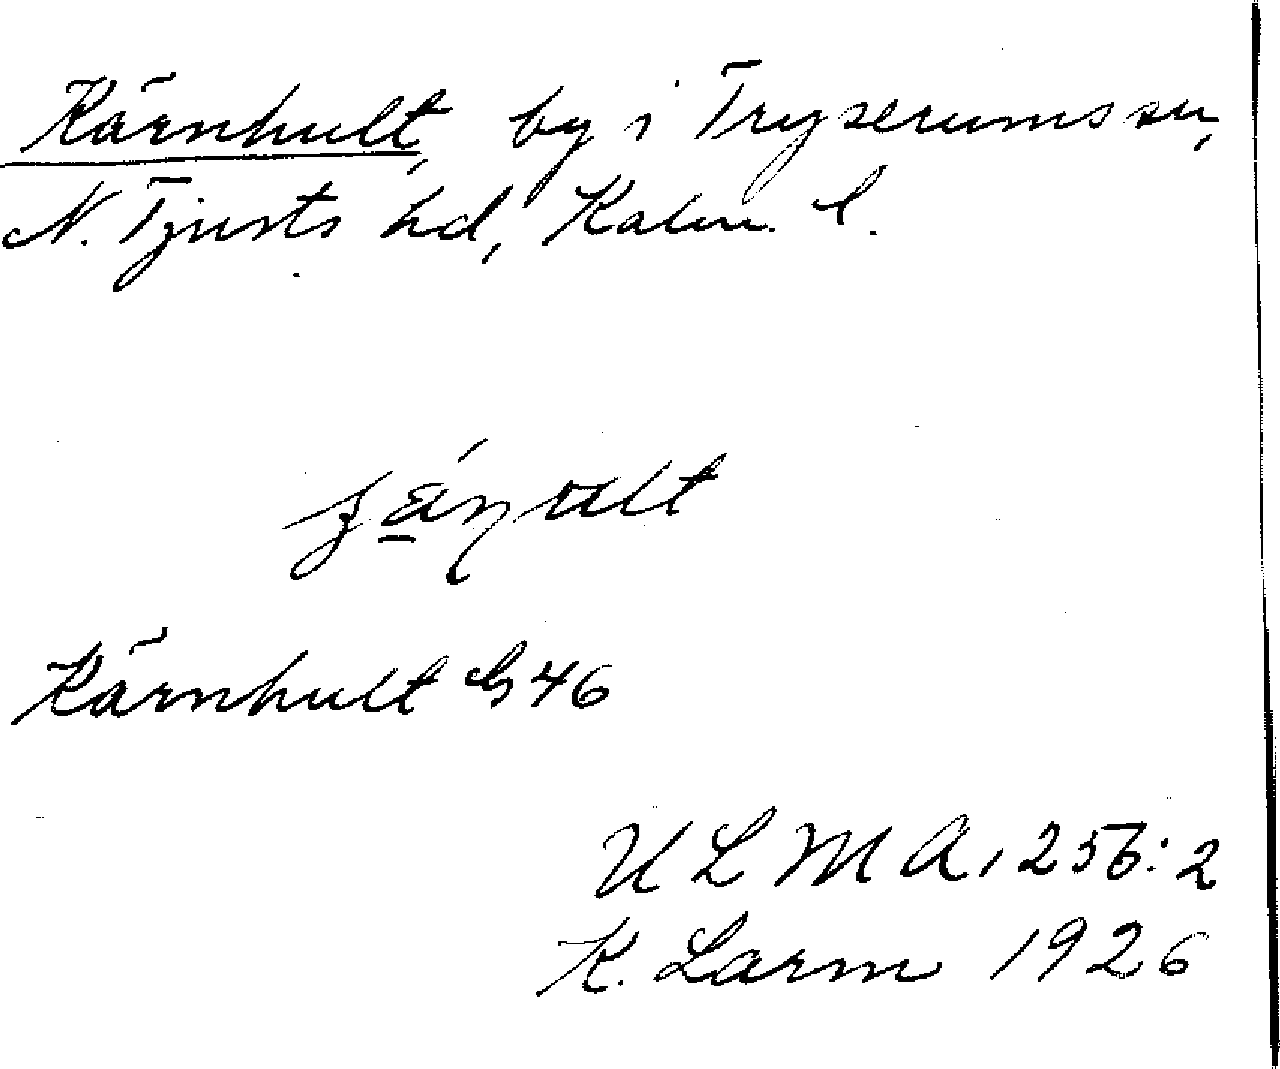 Kärnhult, by i Tryserums sn,
N. Tjusts hd, Kalm. l.
Kärnhult G 46
ULMA, 256:2
K. Larm 1926